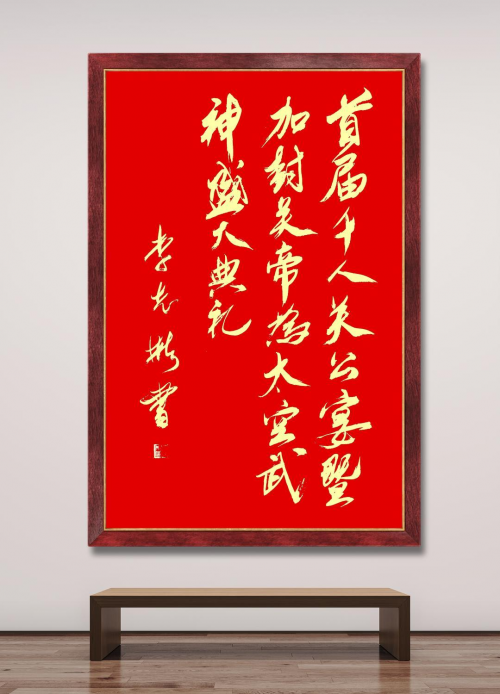 首届千人关公宴暨
加封关帝為太空武
神盛大典礼
李志彬書